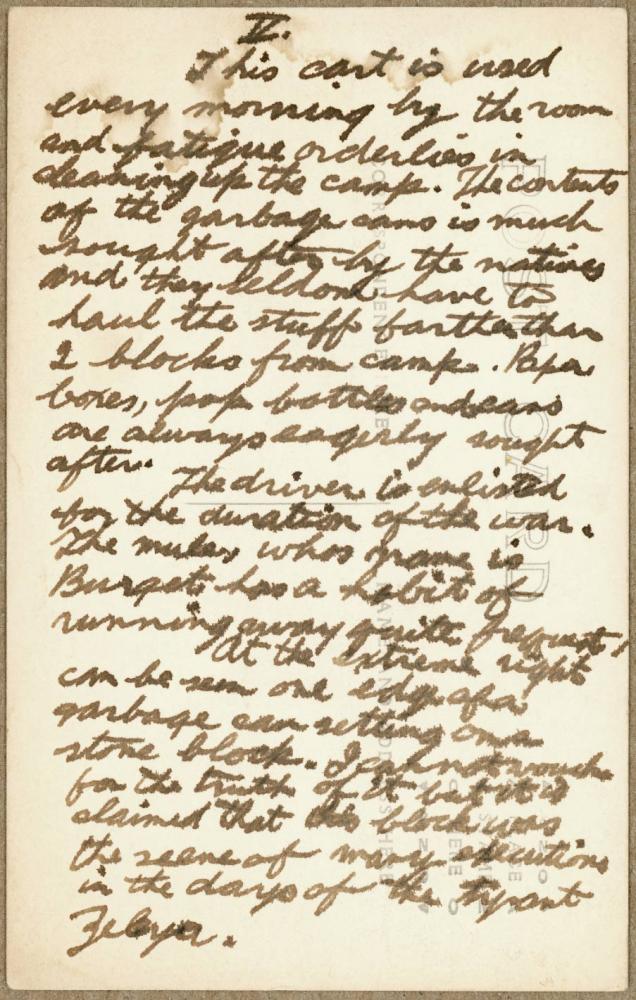 V.
This cart is used
every morning by the room
and fatigue orderlies in
cleaning up the camp. The contents
of the garbage cans is much
sought after by the natives
and they seldom have to
haul the stuff farther than
2 blocks from camp. Paper
boxes, pop bottles and cans
are always eagerly sought
after.
The driver is enlisted
for the duration of the war.
The mule, whos name is
has a habit of
running away quite
At the extreme right
can be seen one edge of a
garbage can setting on a
stone block. I can not vouch
for the truth of it but it is
claimed that this block was
the scene of many executions
in the days of the tyrant
POST CARD
CORRESPONDENCE HERE
NAME AND ADDRESS HERE
PLACE STAMP HERE